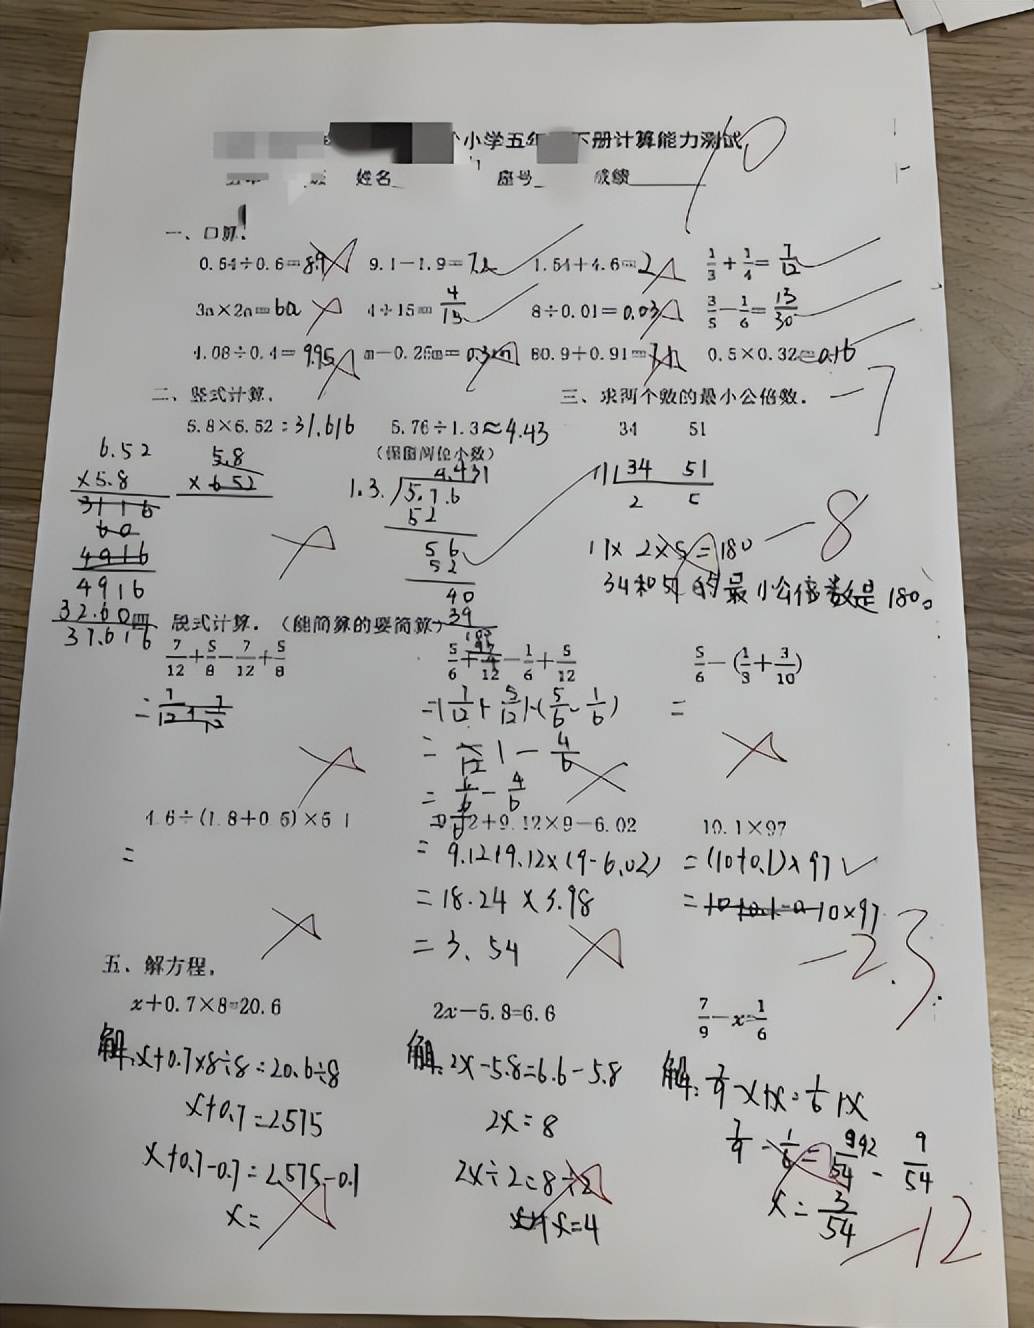 小学五年 下册计算能力测试
姓名 座号 成绩
10
一、口算.
0.54÷0.6=8.9 9.1-1.9=7.2 1.54+4.6=2 1/3+1/4=7/12
3a×2a=6a 4÷15=4/15 8÷0.01=0.03 3/5-1/6=13/30
4.08÷0.4=9.95 m-0.25m=0.3m 80.9+0.91= 0.5×0.32=0.16
-7
二、竖式计算. 三、求两个数的最小公倍数.
5.8×6.52=31.616 5.76÷1.3≈4.43 34 51
(保留两位小数)
6.52 5.8 4.431 34 51
×5.8 ×652 1.3 5.7.6 2 5
3116 52
60 56 11×2×5=180
4916 52 34和51的最小公倍数是180。
4916 40 -8
32.60 39
37.616
四、脱式计算.(能简算的要简算)
7/12+5/8-7/12+5/8 5/6+7/12-1/6+5/12 5/6-(1/3+3/10)
= =(7/12+5/12)-(5/6-1/6) =
= 1-4/6
=6/6-4/6
4.6÷(1.8+0.5)×5.1 9.12+9.12×9-6.02 10.1×97
= =9.12+9.12×(9-6.02) =(10+0.1)×97
=18.24×3.98 =10×97
=3.54 -23
五、解方程.
x+0.7×8=20.6 2x-5.8=6.6 7/9-x=1/6
解:x+0.7×8÷8=20.6÷8 解:2x-5.8=6.6-5.8 解:7/9-x+x=1/6+x
x+0.7=2.575 2x=8 7/9-1/6=42/54-9/54
x+0.7-0.7=2.575-0.7 2x÷2=8÷2 x=3/54
x= x=4 -12